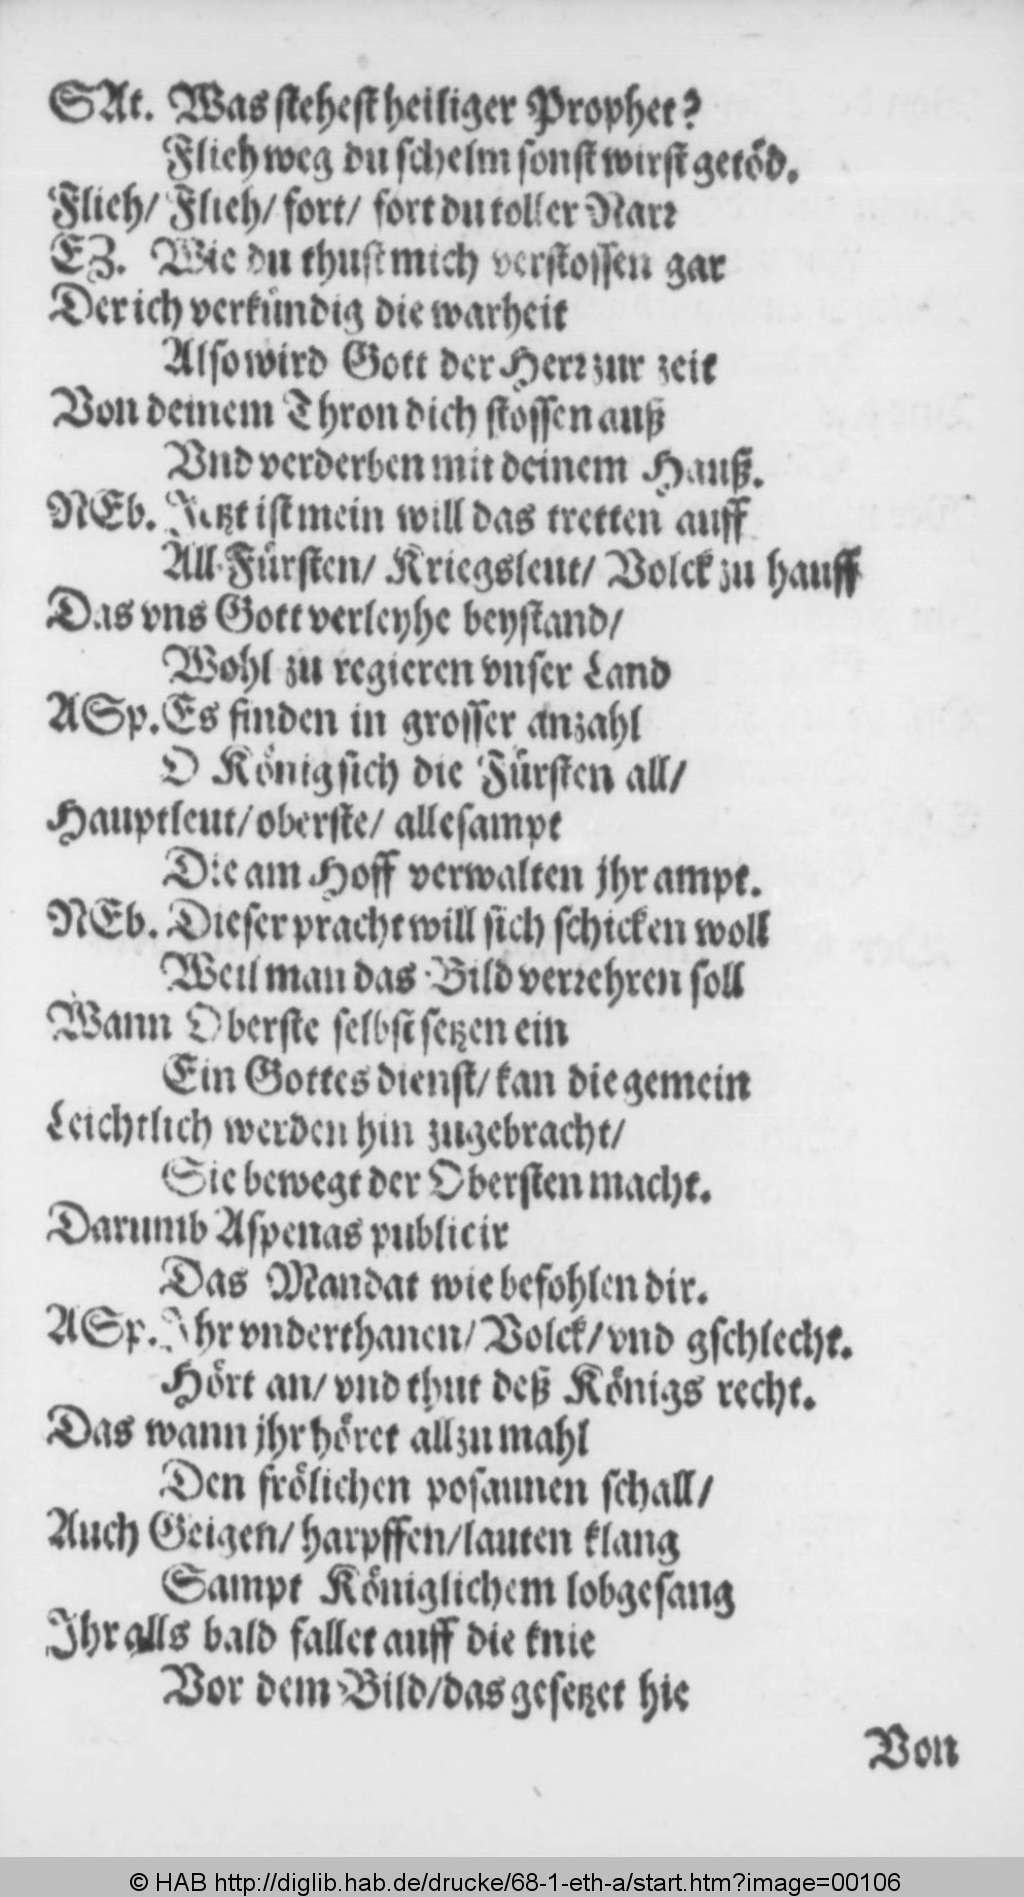 SAt. Was stehest heiliger Prophet?
Flieh weg du schelm sonst wirst getöd.
Flieh/ Flieh/ fort/ fort du toller Narr
EZ. Wie du thust mich verstossen gar
Der ich verkündig die warheit
Also wird Gott der Herr zur zeit
Von deinem Thron dich stossen auß
Vnd verderben mit deinem Hauß.
NEb. Jetzt ist mein will das tretten auff
All Fürsten/ Kriegsleut/ Volck zu hauff
Das vns Gott verleyhe beystand/
Wohl zu regieren vnser Land
ASp. Es finden in grosser anzahl
O König sich die Fürsten all/
Hauptleut/ oberste/ allesampt
Die am Hoff verwalten jhr ampt.
NEb. Dieser pracht will sich schicken woll
Weil man das Bild verrehren soll
Wann Oberste selbst setzen ein
Ein Gottes dienst/ kan die gemein
Leichtlich werden hin zugebracht/
Sie bewegt der Obersten macht.
Darumb Aspenas publicir
Das Mandat wie befohlen dir.
ASp. Jhr vnderthanen/ Volck/ vnd gschlecht.
Hört an/ vnd thut deß Königs recht.
Das wann jhr höret allzumahl
Den frölichen posaunen schall/
Auch Geigen/ harpffen/ lauten klang
Sampt Königlichem lobgesang
Jhr alls bald fallet auff die knie
Vor dem Bild/ das gesetzet hie
Von
© HAB http://diglib.hab.de/drucke/68-1-eth-a/start.htm?image=00106